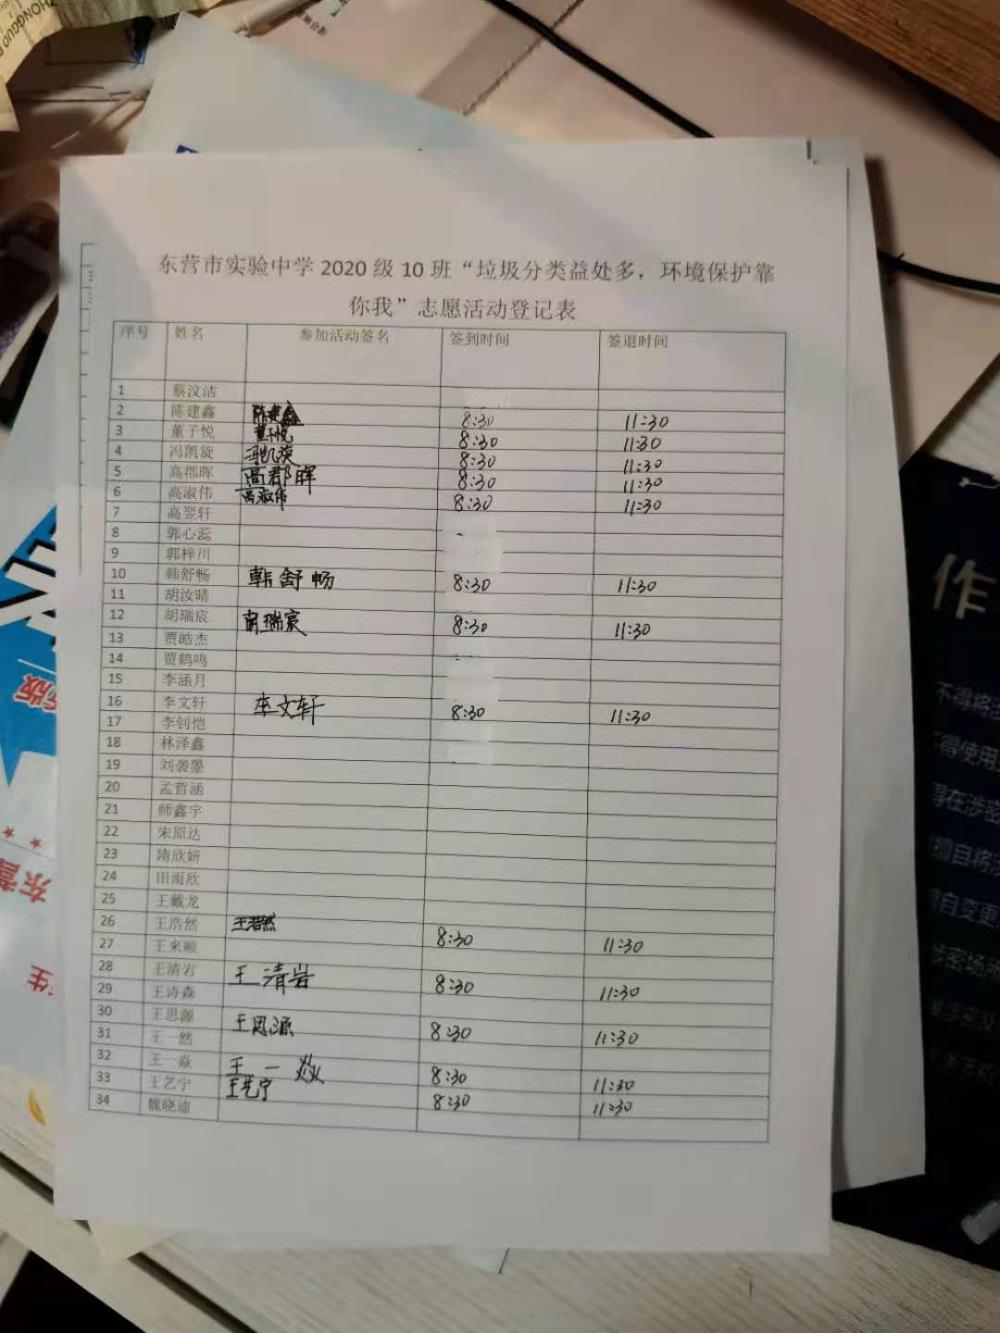 东营市实验中学 2020 级 10 班“垃圾分类益处多，环境保护靠
你我”志愿活动登记表
序号 姓名 参加活动签名 签到时间 签退时间
1 蔡汶洁
2 陈建鑫 陈建鑫 8:30 11:30
3 董子悦 董子悦 8:30 11:30
4 冯凯旋 冯凯旋 8:30 11:30
5 高郡晖 高郡晖 8:30 11:30
6 高淑伟 高淑伟 8:30 11:30
7 高翌轩
8 郭心蕊
9 郭梓川
10 韩舒畅 韩舒畅 8:30 11:30
11 胡汝晴
12 胡瑞宸 胡瑞宸 8:30 11:30
13 贾皓杰
14 贾鹤鸣
15 李涵月
16 李文轩 李文轩 8:30 11:30
17 李钊恺
18 林泽鑫
19 刘袭墨
20 孟哲涵
21 师鑫宇
22 宋原达
23 隋欣妍
24 田雨欣
25 王戴龙
26 王浩然 王浩然 8:30 11:30
27 王来顺
28 王清岩 王清岩 8:30 11:30
29 王诗森
30 王思源 王思源 8:30 11:30
31 王一然
32 王一焱 王一焱 8:30 11:30
33 王艺宁 王艺宁 8:30 11:30
34 魏晓迪
作
不得将
得使用
得在涉密
擅自将
自变更
涉密场所
版
东营
生